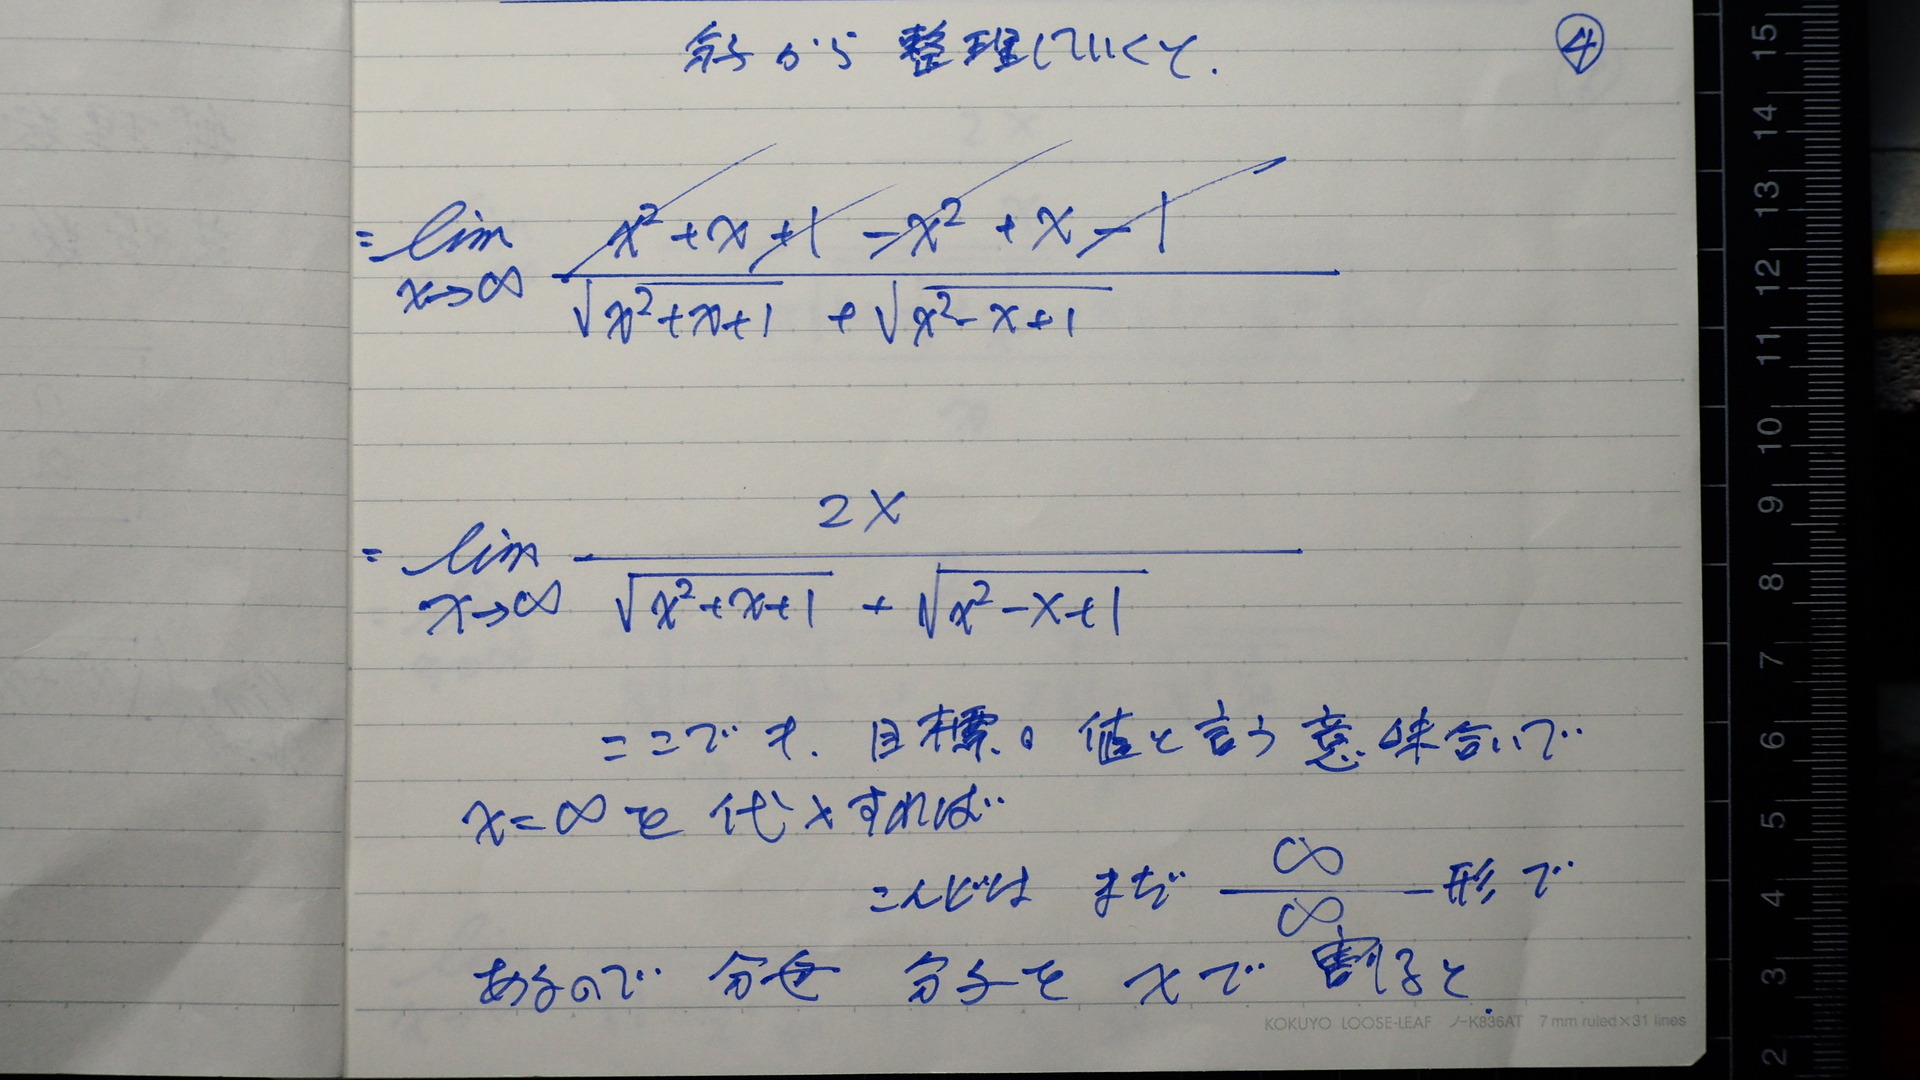 分子から 整理していくと. ④
= lim x→∞ (x²+x+1 -x²+x-1) / (√(x²+x+1) + √(x²-x+1))
= lim x→∞ 2x / (√(x²+x+1) + √(x²-x+1))
ここでも. 目標の 値と言う 意味合いで
x=∞を 代入すれば
こんどは まだ ∞/∞ 形で
あるので 分母 分子を xで 割ると.
KOKUYO LOOSE-LEAF ノ-K836AT 7 mm ruled×31 lines
15
14
13
12
11
10
9
8
7
6
5
4
3
2